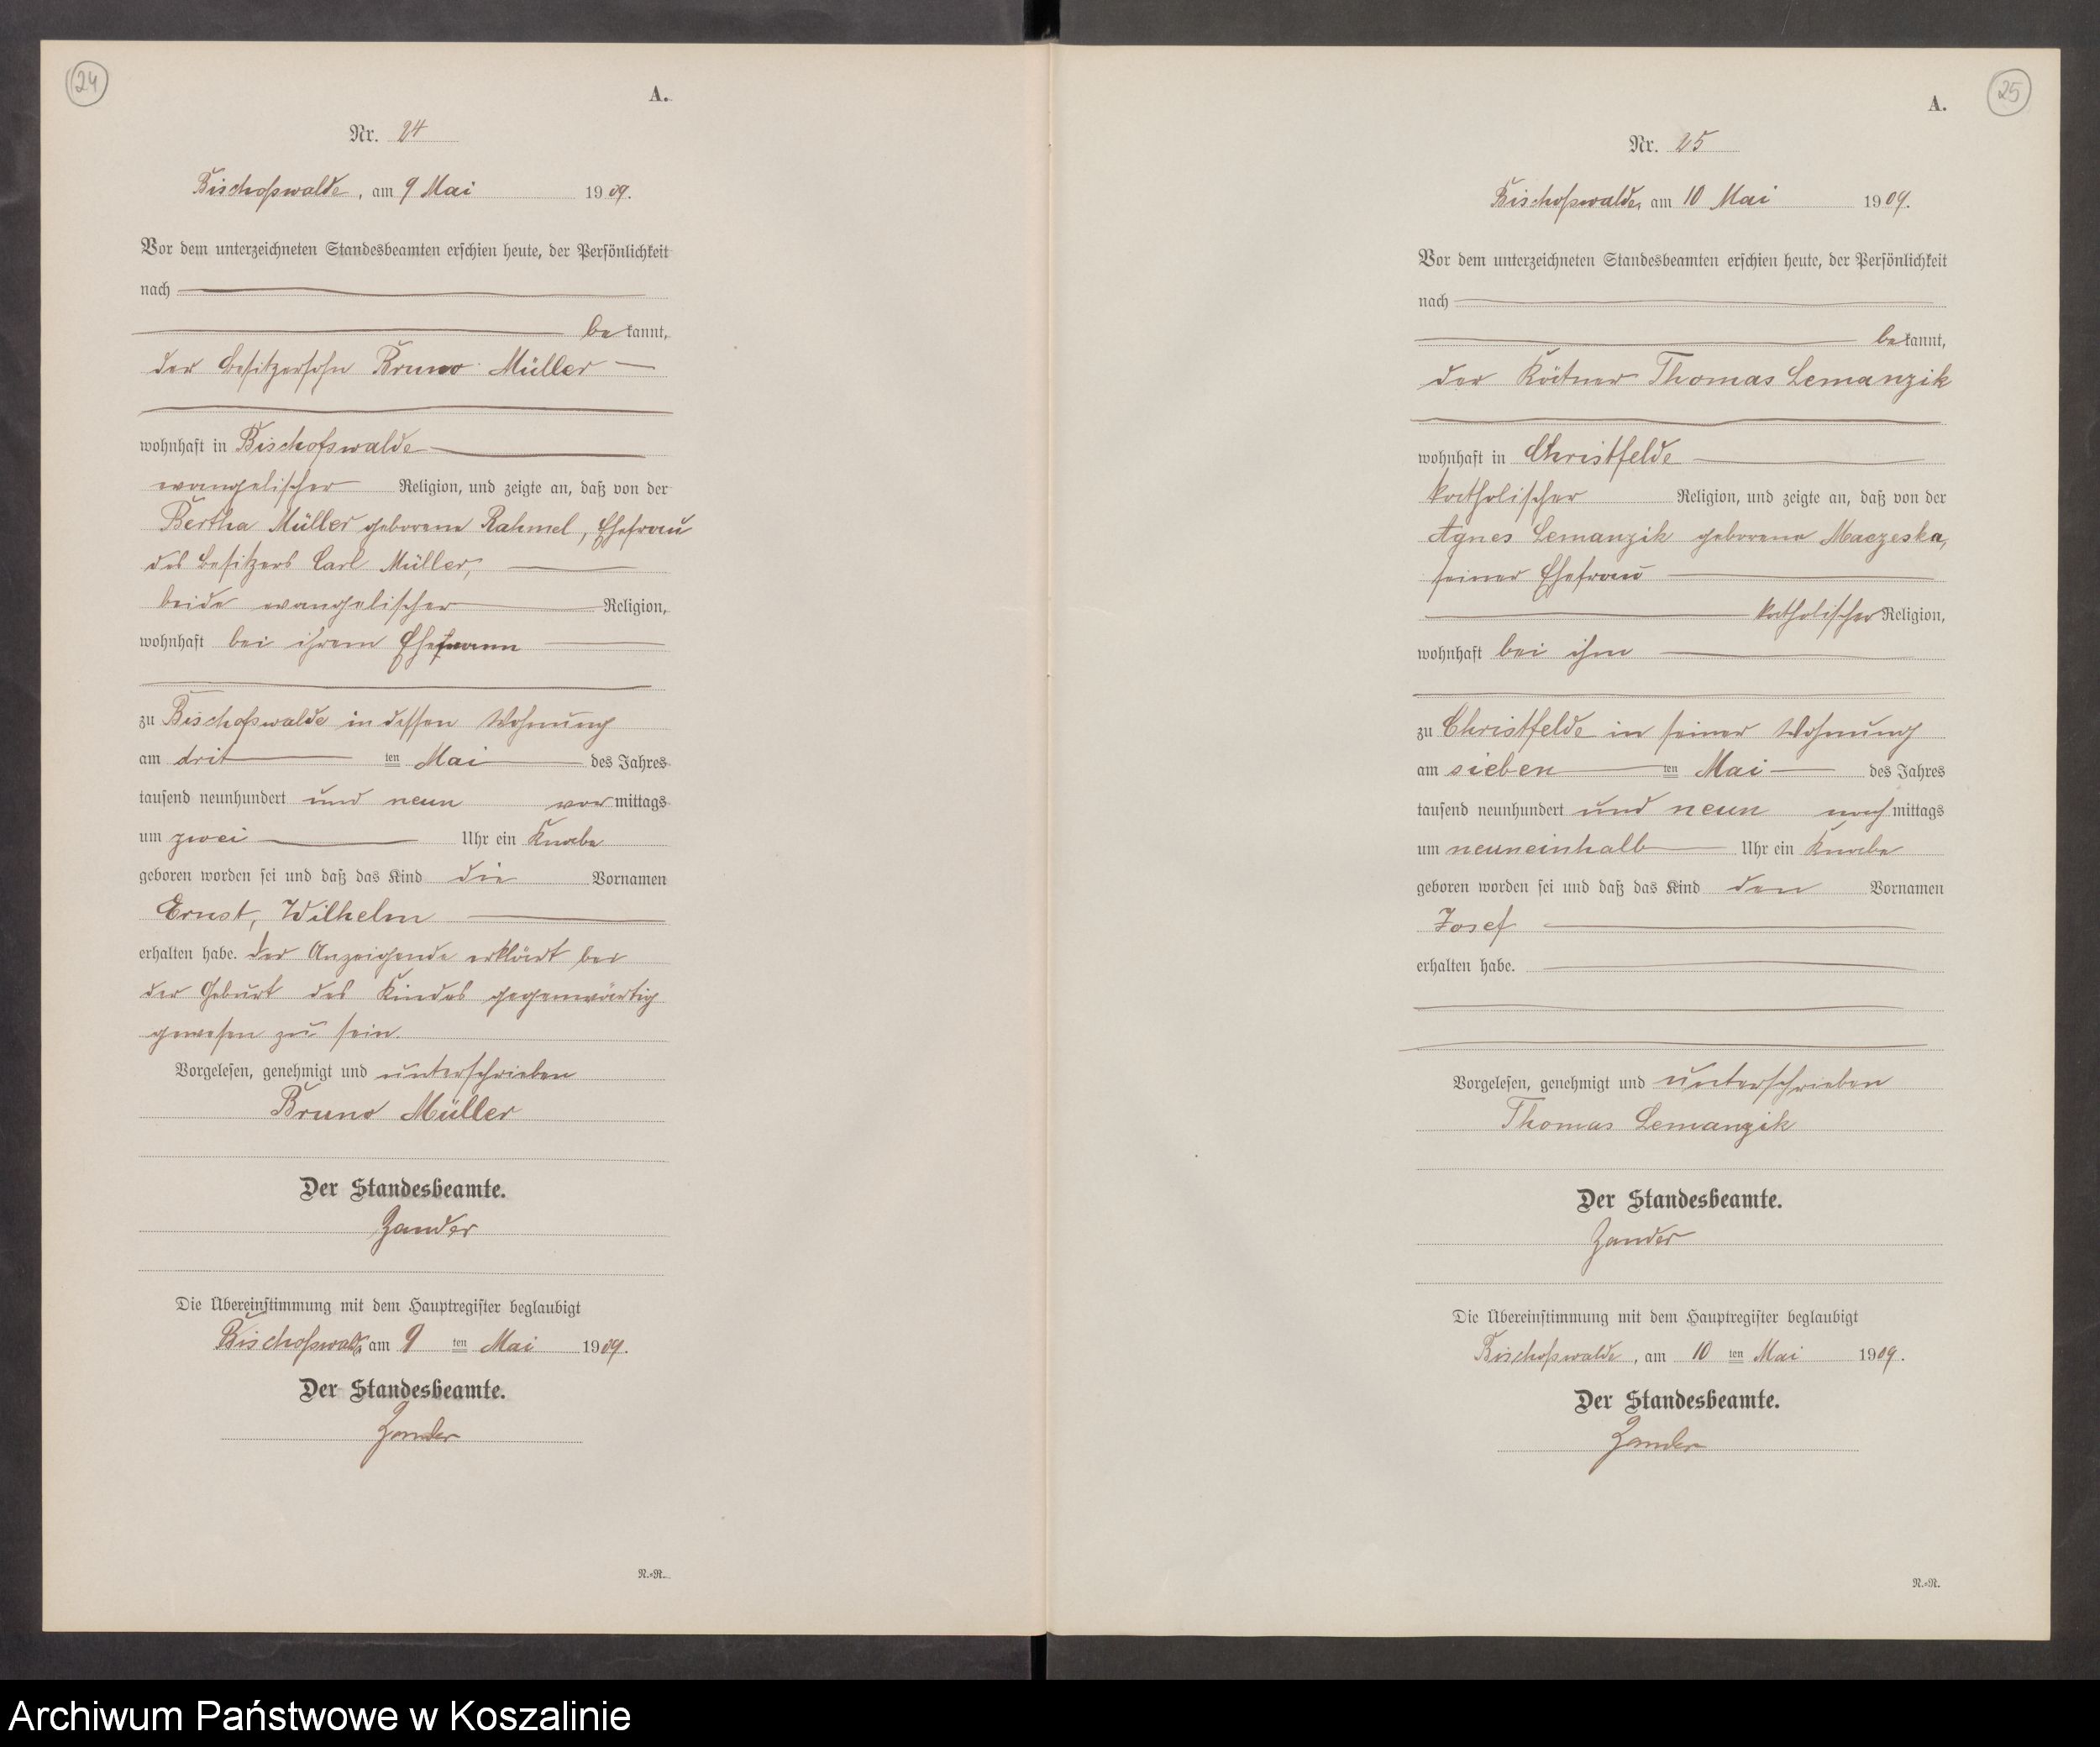 24
A.
Nr. 24
Bischofswalde, am 9 Mai 1909.
Vor dem unterzeichneten Standesbeamten erschien heute, der Persönlichkeit
nach
bekannt,
der Besitzersohn Bruno Müller
wohnhaft in Bischofswalde
evangelischer Religion, und zeigte an, daß von der
Bertha Müller geborene Rahmel, Ehefrau
des Besitzers Carl Müller,
beide evangelischer Religion,
wohnhaft bei ihrem Ehemann
zu Bischofswalde in dessen Wohnung
am drit ten Mai des Jahres
tausend neunhundert und neun vormittags
um zwei Uhr ein Knabe
geboren worden sei und daß das Kind die Vornamen
Ernst, Wilhelm
erhalten habe. Der Anzeigende erklärt bei
der Geburt des Kindes gegenwärtig
gewesen zu sein.
Vorgelesen, genehmigt und unterschrieben
Bruno Müller
Der Standesbeamte.
Zander
Die Übereinstimmung mit dem Hauptregister beglaubigt
Bischofswalde, am 9 ten Mai 1909.
Der Standesbeamte.
Zander
N.=R.
25
A.
Nr. 25
Bischofswalde, am 10 Mai 1909.
Vor dem unterzeichneten Standesbeamten erschien heute, der Persönlichkeit
nach
bekannt,
der Kätner Thomas Lemanzik
wohnhaft in Christfelde
katholischer Religion, und zeigte an, daß von der
Agnes Lemanzik geborene Maczeska,
seiner Ehefrau
katholischer Religion,
wohnhaft bei ihm
zu Christfelde in seiner Wohnung
am sieben ten Mai des Jahres
tausend neunhundert und neun nachmittags
um neuneinhalb Uhr ein Knabe
geboren worden sei und daß das Kind den Vornamen
Josef
erhalten habe.
Vorgelesen, genehmigt und unterschrieben
Thomas Lemanzik
Der Standesbeamte.
Zander
Die Übereinstimmung mit dem Hauptregister beglaubigt
Bischofswalde, am 10 ten Mai 1909.
Der Standesbeamte.
Zander
N.=R.
Archiwum Państwowe w Koszalinie